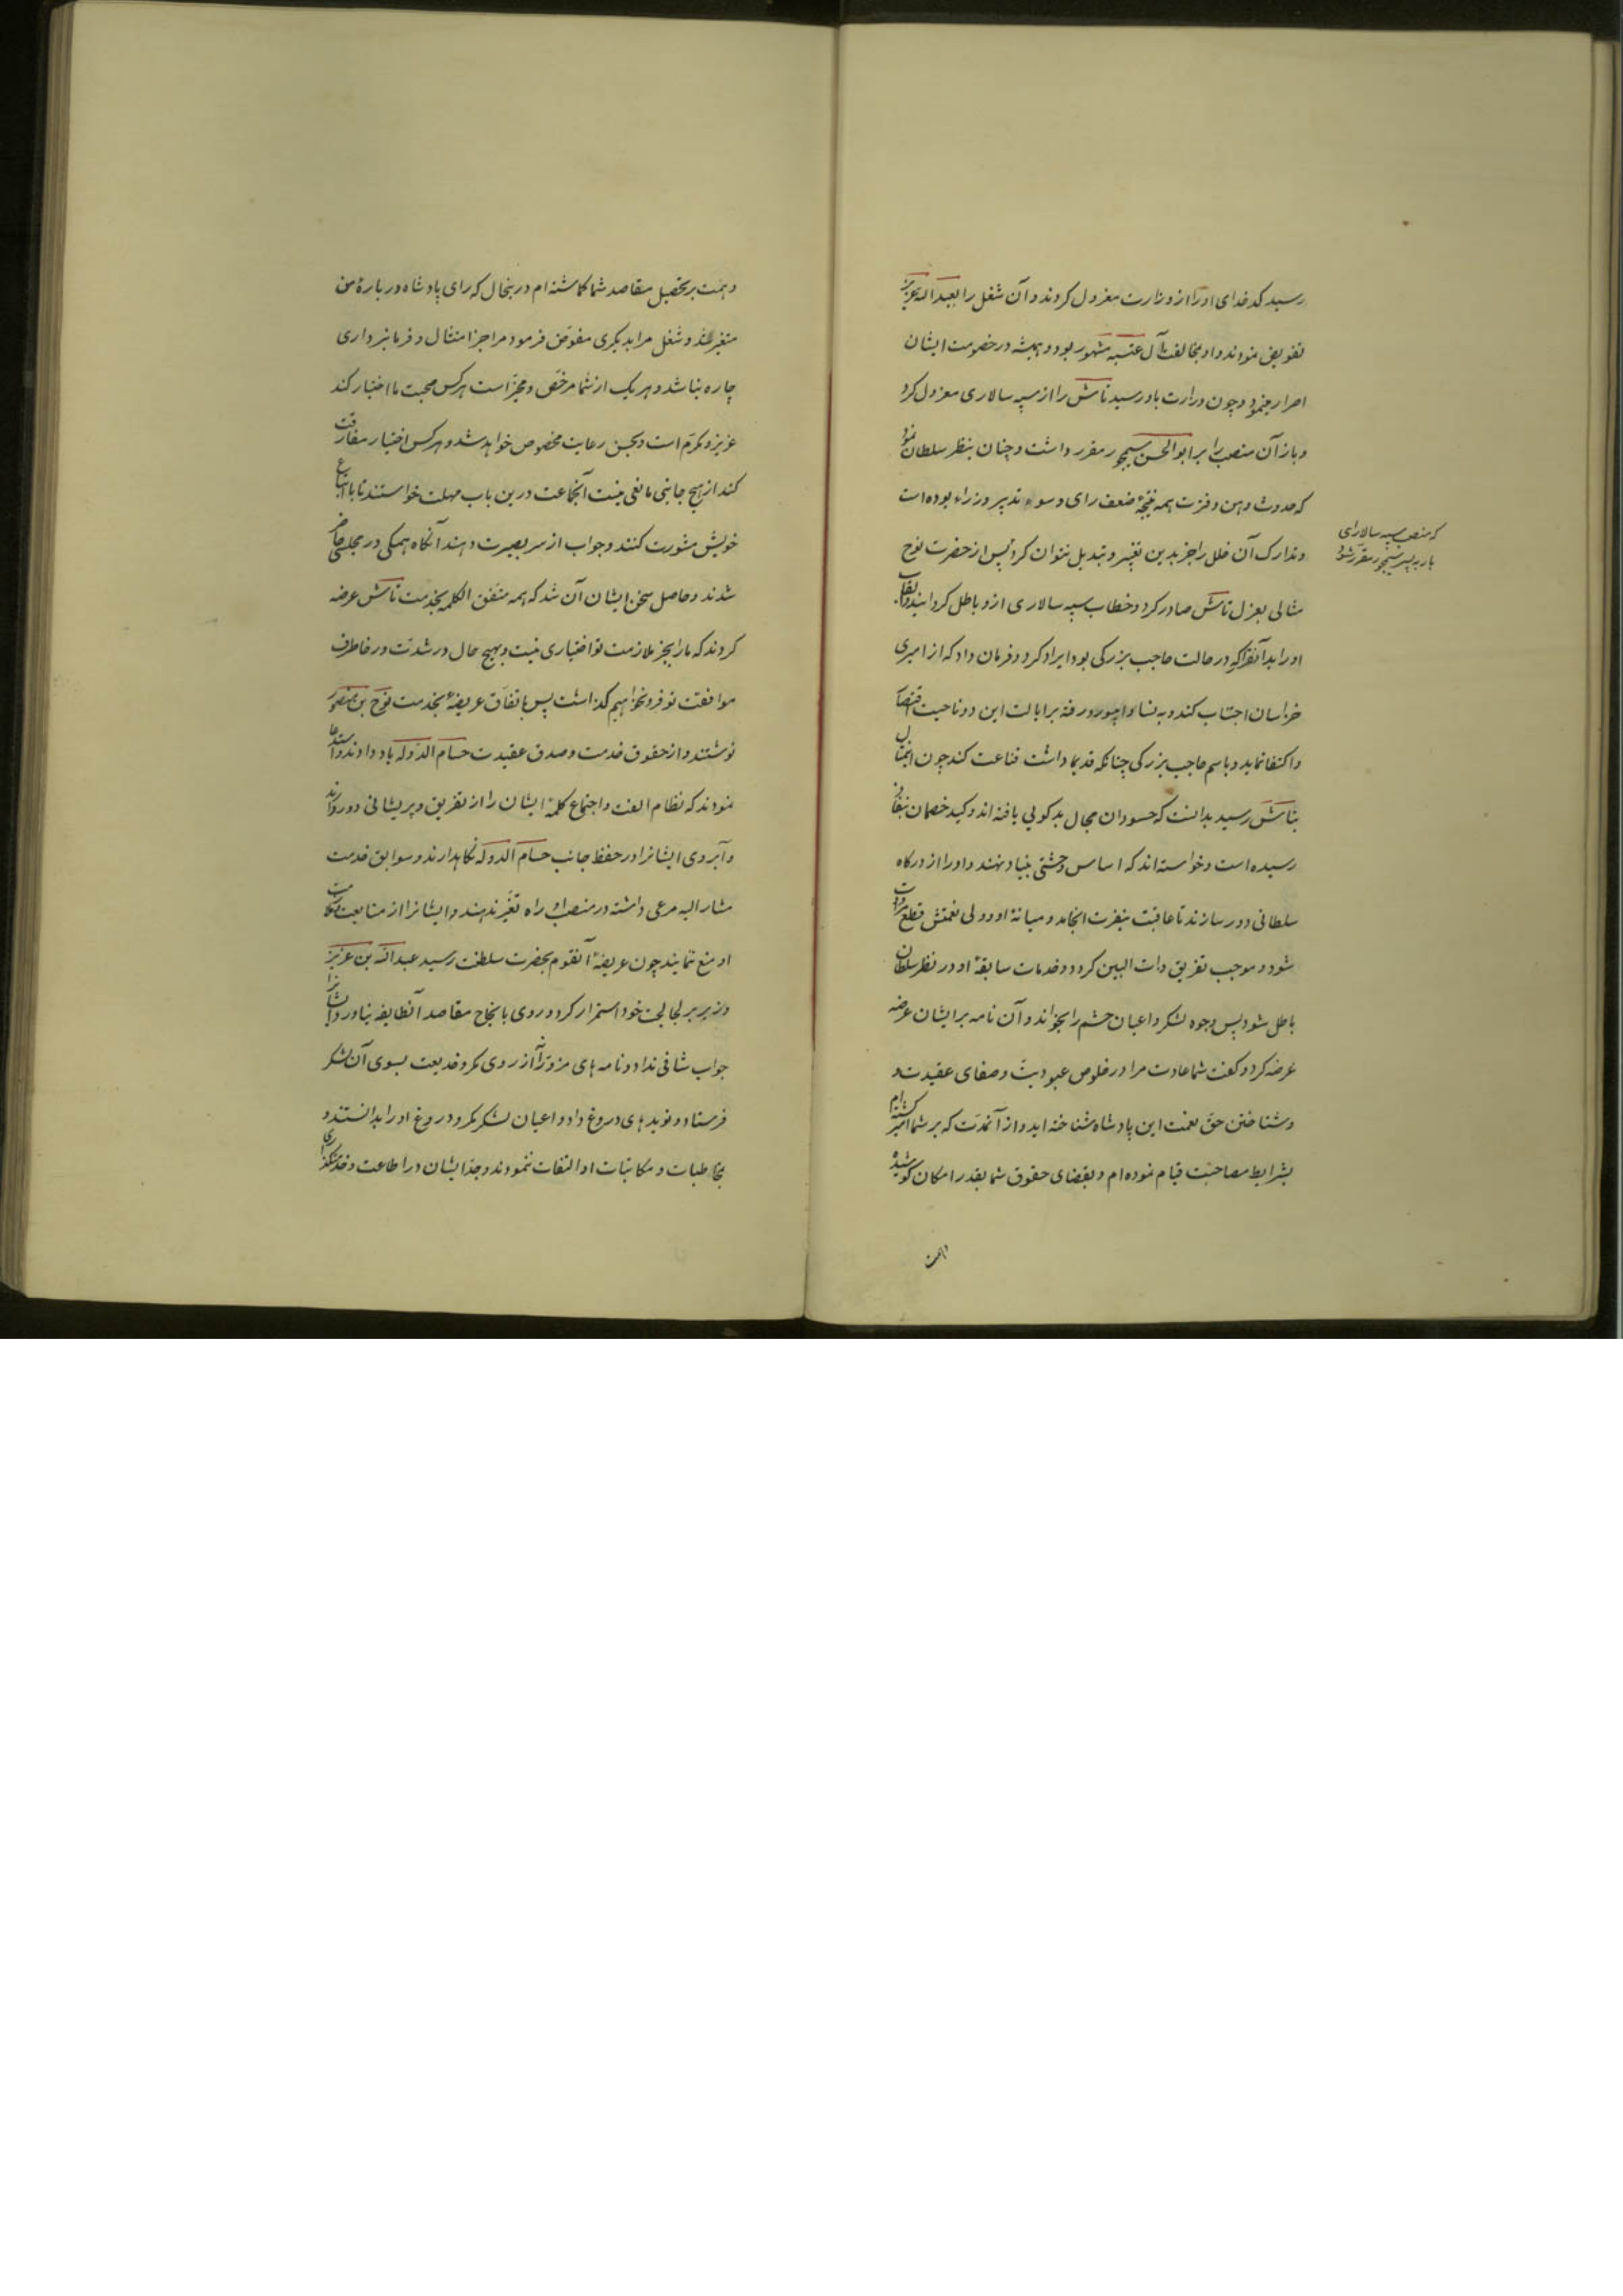 رسید کدخدای او را از وزارت معزول کردند و آن شغل را بعبدالله عزیز
تفویض نمودند و او بمخالفت آل عتبه مشهور بود و همیشه در خصومت ایشان
اصرار مینمود و چون وزارت باو رسید تاش را از سپه سالاری معزول کرد
و باز آن منصب را بر ابوالحسن سیمجور مقرر داشت و چنان بنظر سلطان نمود
که حدوث وهن و فترت همه نتیجهٔ ضعف رای و سوء تدبیر وزراء بوده است
که منصب سپه سالارای
باز به پسر سیمجور مقرر شود
و تدارک آن خلل را جز بدین تغییر و تبدیل نتوان کرد پس از حضرت نوح
مثالی بعزل تاش صادر کرد و خطاب سپه سالاری ازو باطل گردانیدند و القاب
او را بدانقرار که در حالت حاجب بزرگی بود ایراد کرد و فرمان داد که از امیری
خراسان اجتناب کند و به نسا و ابیورد رفته بر ایالت این دو ناحیت اقتصار
و اکتفا نماید و باسم حاجب بزرگی چنانکه قدیما داشت قناعت کند چون این مثال
بتاش رسید بدانست که حسودان مجال بدگویی یافته اند و کید خصمان بنفاذ
رسیده است و خواسته اند که اساس وحشتی بنیاد نهند و او را از درگاه
سلطانی دور سازند تا عاقبت بنفرت انجامد و میانهٔ او و ولی نعمتش قطع مروت
شود و موجب تفریق ذات البین گردد و خدمات سابقهٔ او در نظر سلطان
باطل شود پس وجوه لشکر و اعیان حشم را بخواند و آن نامه بر ایشان عرضه
عرضه کرد و گفت شما عادت مرا در خلوص عبودیت و صفای عقیدت و
و شناختن حق نعمت این پادشاه شناخته اید و از آنمدت که بر شما امیر گشته ام
بشرایط مصاحبت قیام نموده ام و بقضای حقوق شما بقدر امکان کوشیده
وهمت
و همت بر تحصیل مقاصد شما گماشته ام درینحال که رای پادشاه دربارهٔ من
متغیر شد و شغل مرا بدیگری مفوّض فرمود مرا جز امتثال و فرمانبرداری
چاره نباشد و هر یک از شما مرخّص و مخیّر است هر کس صحبت ما اختیار کند
عزیز و مکرّم است و بحسن رعایت مخصوص خواهد شد و هر کس اختیار مفارقت
کند از هیچ جانبی مانعی نیست آنجماعت درین باب مهلت خواستند تا با اتباع
خویش مشورت کنند و جواب از سر بصیرت دهند آنگاه همگی در مجلسی حاضر
شدند و حاصل سخن ایشان آن شد که همه متفق الکلمه بخدمت تاش عرضه
کردند که ما را بجز ملازمت تو اختیاری نیست و بهیچ حال در شدّت و رخا طرف
موافقت تو فرو نخواهیم گذاشت پس باتفاق عریضهٔ بخدمت نوح بن منصور
نوشتند و از حقوق خدمت و صدق عقیدت حسام الدوله یاد دادند و استدعا
نمودند که نظام الفت و اجتماع کلمهٔ ایشان را از تفریق و پریشانی دور دارند
و آبروی ایشانرا در حفظ جانب حسام الدوله نگاهدارند و سوابق خدمت
مشارالیه مرعی داشته در منصب او راه تغیّر ندهند و ایشانرا از متابعت
او منع ننمایند چون عریضهٔ آنقوم بحضرت سلطنت رسید عبدالله بن عزیز
وزیر بر لجاجت خود استمرار کرد و روی بانجاح مقاصد آنطایفه نیاورد و ایشانرا
جواب شافی نداد و نامه های مزوّر را از روی مکر و خدیعت بسوی آن لشکر
فرستاد و نویدهای دروغ داد و اعیان لشکر مکر و دروغ او را بدانستند و
بمخاطبات و مکاتبات او التفات ننمودند و جدّ ایشان در اطاعت و خدمتگذاری